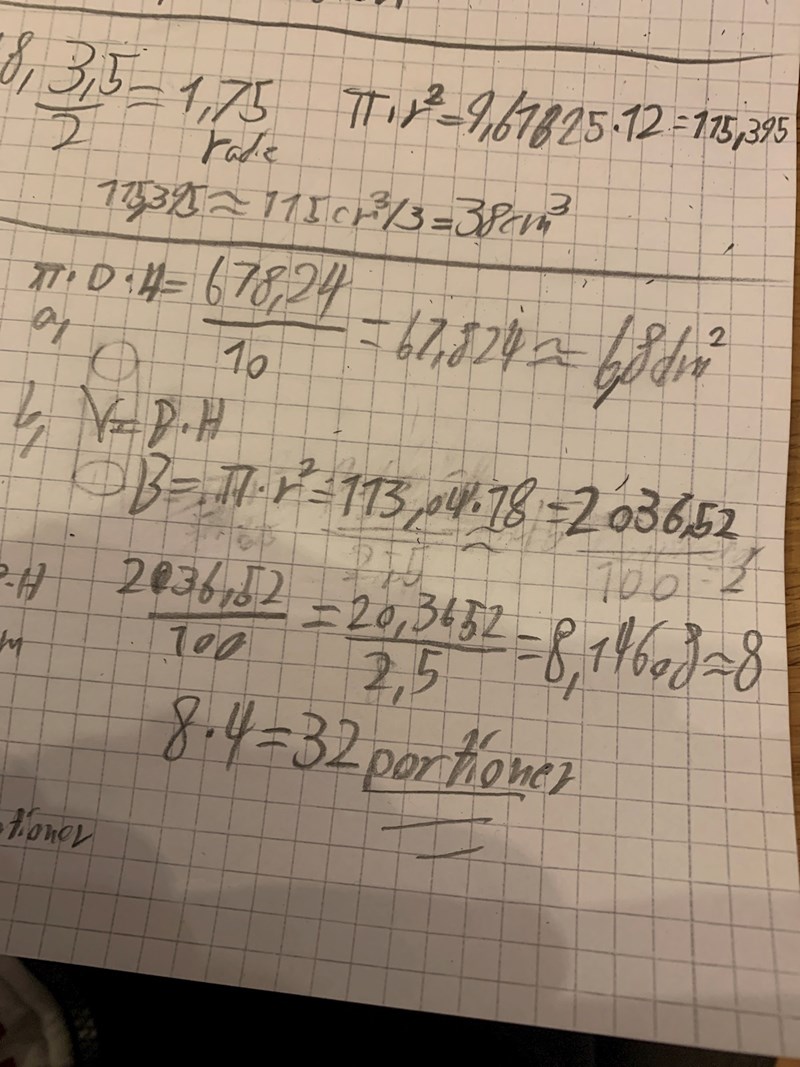 8, 3,5/2 = 1,75 π·r² = 9,61625·12 = 115,395
radie
115,395 ≈ 115cm³/3 = 38cm³
π·D·H = 678,24/10 = 67,824 ≈ 6,8dm²
a,
b, V = B·H
B = π·r² = 113,04·18 = 2036,52
100
2036,52/100 = 20,3652/2,5 = 8,14608 ≈ 8
·H
m
8·4 = 32 portioner
tioner